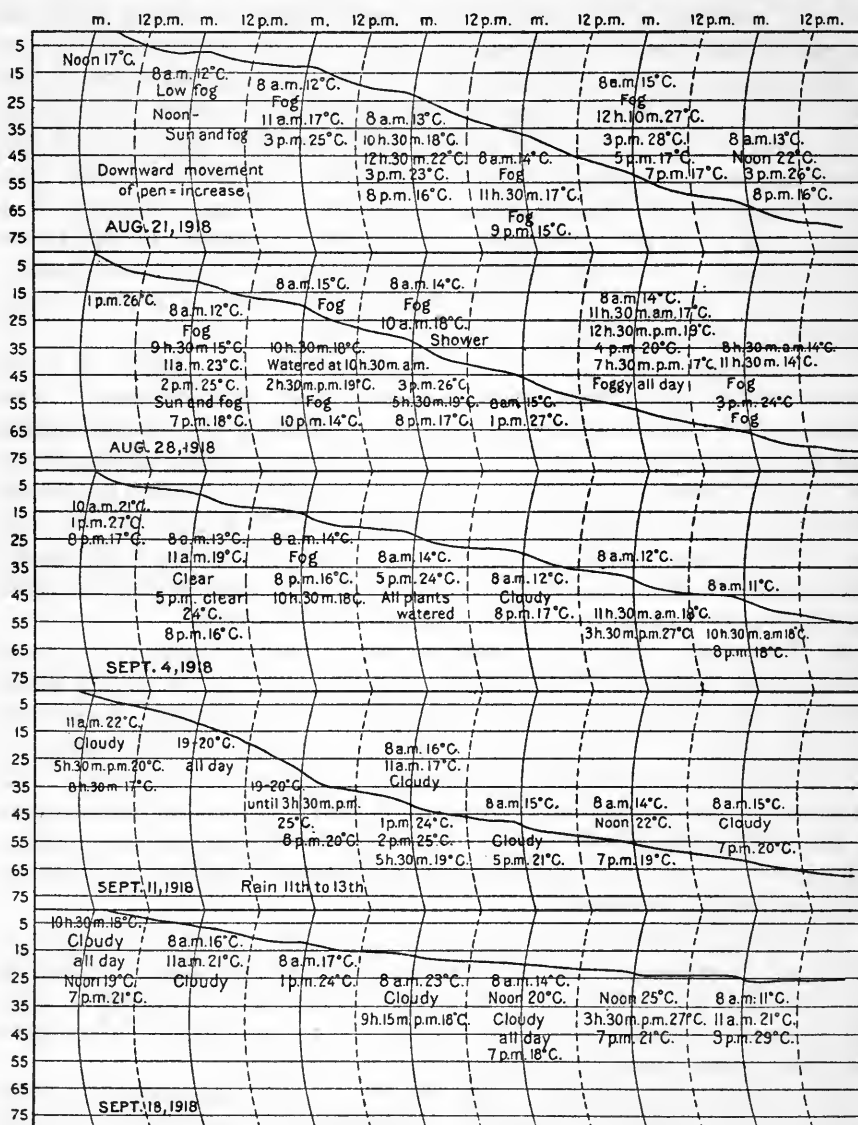 m. 12 p.m. m. 12 p.m. m. 12 p.m. m. 12 p.m. m. 12 p.m. m. 12 p.m. m. 12 p.m.
5
15
25
35
45
55
65
75
Noon 17°C.
8 a.m. 12°C.
Low fog
Noon-
Sun and fog
Downward movement
of pen = increase
8 a.m. 12°C.
Fog
11 a.m. 17°C.
3 p.m. 25°C.
8 a.m. 13°C.
10 h. 30 m. 18°C.
12 h. 30 m. 22°C.
3 p.m. 23°C.
8 p.m. 16°C.
8 a.m. 14°C.
Fog
11 h. 30 m. 17°C.
Fog
9 p.m. 15°C.
8 a.m. 15°C.
Fog
12 h. 10 m. 27°C.
3 p.m. 28°C.
5 p.m. 17°C.
7 p.m. 17°C.
8 a.m. 13°C.
Noon 22°C.
3 p.m. 26°C.
8 p.m. 16°C.
AUG. 21, 1918
5
15
25
35
45
55
65
75
1 p.m. 26°C.
8 a.m. 12°C.
Fog
9 h. 30 m 15°C.
11 a.m. 23°C.
2 p.m. 25°C.
Sun and fog
7 p.m. 18°C.
8 a.m. 15°C.
Fog
10 h. 30 m. 18°C.
Watered at 10 h. 30 m. a.m.
2 h. 30 m. p.m. 19°C.
Fog
10 p.m. 14°C.
8 a.m. 14°C.
Fog
10 a.m. 18°C.
Shower
3 p.m. 26°C.
5 h. 30 m. 19°C.
8 p.m. 17°C.
8 a.m. 15°C.
1 p.m. 27°C.
8 a.m. 14°C.
11 h. 30 m. a.m. 17°C.
12 h. 30 m. p.m. 19°C.
4 p.m. 20°C.
7 h. 30 m. p.m. 17°C.
Foggy all day
8 h. 30 m. a.m. 14°C.
11 h. 30 m. 14°C.
Fog
3 p.m. 24°C
Fog
AUG. 28, 1918
5
15
25
35
45
55
65
75
10 a.m. 21°C.
1 p.m. 27°C.
8 p.m. 17°C.
8 a.m. 13°C.
11 a.m. 19°C.
Clear
5 p.m. clear
24°C.
8 p.m. 16°C.
8 a.m. 14°C.
Fog
8 p.m. 16°C.
10 h. 30 m. 18°C.
8 a.m. 14°C.
5 p.m. 24°C.
All plants
watered
8 a.m. 12°C.
Cloudy
8 p.m. 17°C.
8 a.m. 12°C.
11 h. 30 m. a.m. 18°C.
3 h. 30 m. p.m. 27°C
8 a.m. 11°C.
10 h. 30 m. a.m 18°C.
8 p.m. 18°C.
SEPT. 4, 1918
5
15
25
35
45
55
65
75
11 a.m. 22°C.
Cloudy
5 h. 30 m. p.m. 20°C.
8 h. 30 m 17°C.
19-20°C.
all day
19-20°C
until 3 h. 30 m. p.m.
25°C.
8 p.m. 20°C.
8 a.m. 16°C.
11 a.m. 17°C.
Cloudy
1 p.m. 24°C.
2 p.m. 25°C.
5 h. 30 m. 19°C.
8 a.m. 15°C.
Cloudy
5 p.m. 21°C.
8 a.m. 14°C.
Noon 22°C.
7 p.m. 19°C.
8 a.m. 15°C.
Cloudy
7 p.m. 20°C.
SEPT. 11, 1918 Rain 11th to 13th
5
15
25
35
45
55
65
75
10 h. 30 m. 18°C.
Cloudy
all day
Noon 19°C
7 p.m. 21°C.
8 a.m. 16°C.
11 a.m. 21°C.
Cloudy
8 a.m. 17°C.
1 p.m. 24°C.
8 a.m. 23°C.
Cloudy
9 h. 15 m. p.m. 18°C.
8 a.m. 14°C.
Noon 20°C.
Cloudy
all day
7 p.m. 18°C.
Noon 25°C.
3 h. 30 m. p.m. 27°C.
7 p.m. 21°C.
8 a.m. 11°C.
11 a.m. 21°C.
3 p.m. 29°C.
SEPT. 18, 1918